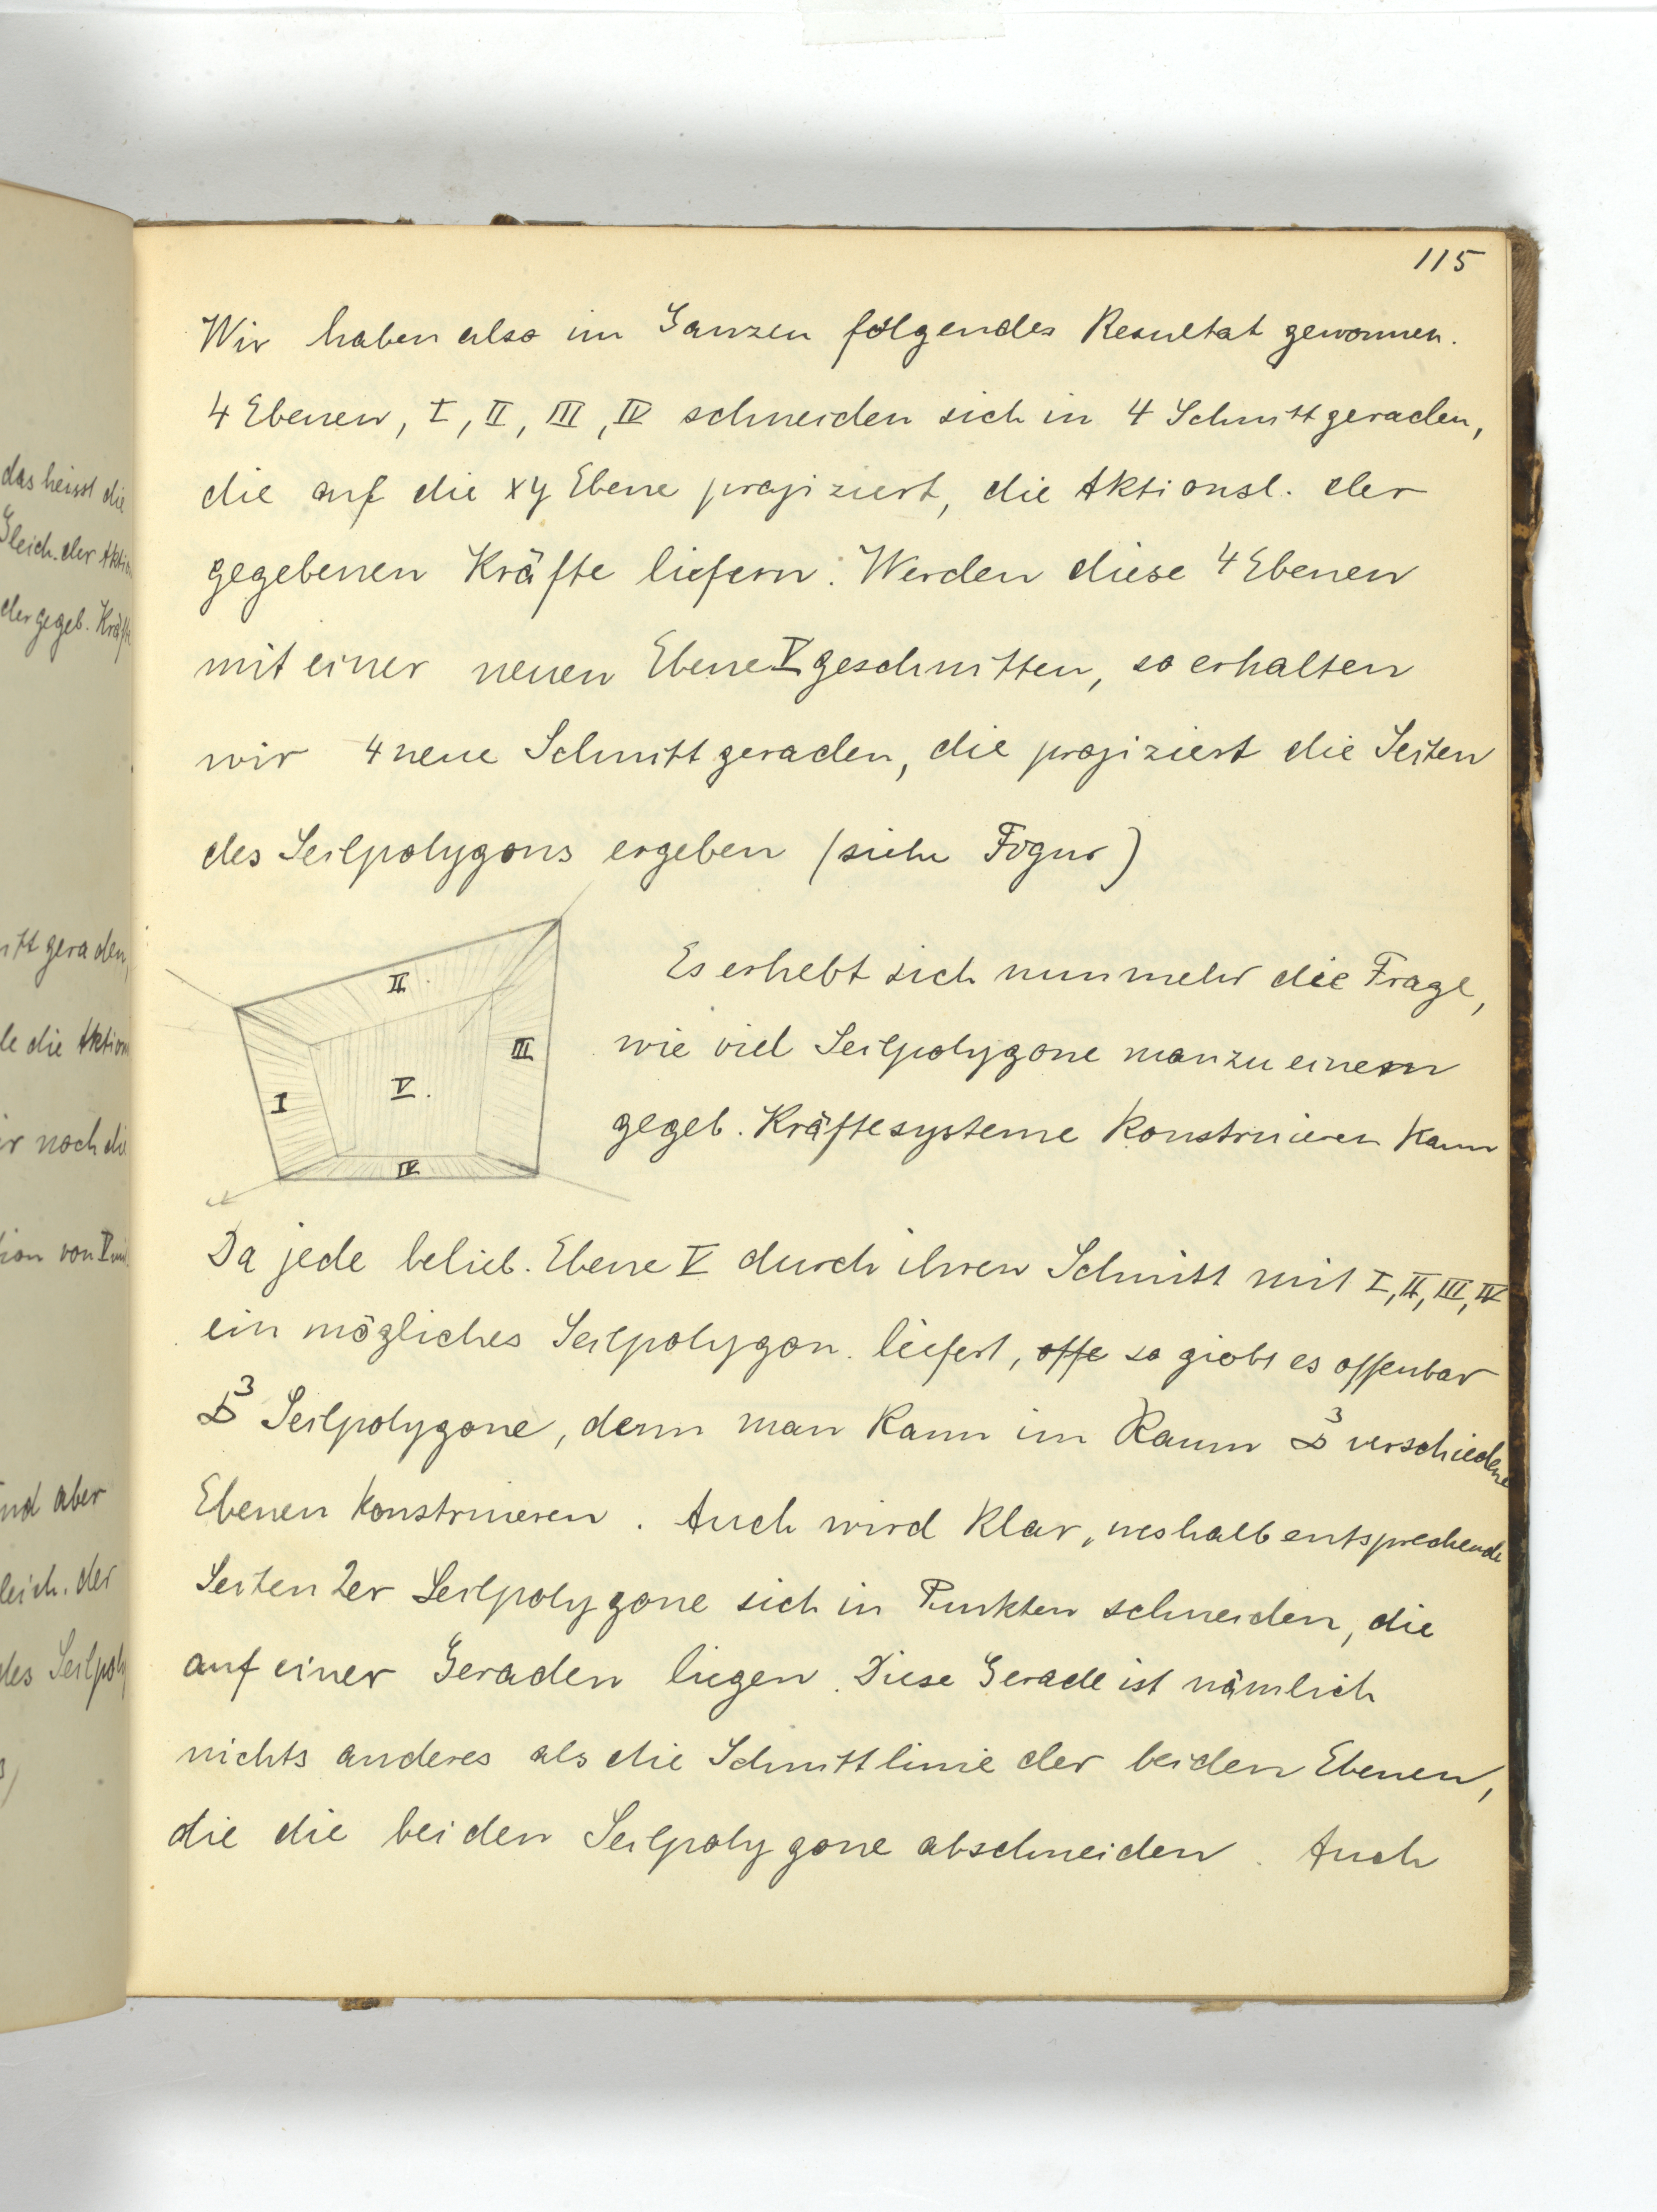 115
Wir haben also im Ganzen folgendes Resultat gewonnen.
4 Ebenen, I, II, III, IV schneiden sich in 4 Schnittgeraden,
die auf die xy Ebene projiziert, die Aktionsl. der
gegebenen Kräfte liefern. Werden diese 4 Ebenen
mit einer neuen Ebene V geschnitten, so erhalten
wir 4 neue Schnittgeraden, die projiziert die Seiten
des Seilpolygons ergeben (siehe Figur)
II
III
I
V.
IV
Es erhebt sich nunmehr die Frage,
wie viel Seilpolygone man zu einem
gegeb. Kräftesysteme konstruieren kann
Da jede belieb. Ebene V durch ihren Schnitt mit I, II, III, IV
ein mögliches Seilpolygon liefert, offe so giebt es offenbar
∞³ Seilpolygone, denn man kann im Raum ∞³ verschiedene
Ebenen konstruieren. Auch wird klar, weshalb entsprechende
Seiten 2er Seilpolygone sich in Punkten schneiden, die
auf einer Geraden liegen. Diese Gerade ist nämlich
nichts anderes als die Schnittlinie der beiden Ebenen,
die die beiden Seilpolygone abschneiden. Auch
das heisst die
Gleich. der Aktio
der gegeb. Kräft
itt geraden,
le die Aktion
ir noch die
tion von V mi
und aber
leich. der
des Seilpoly